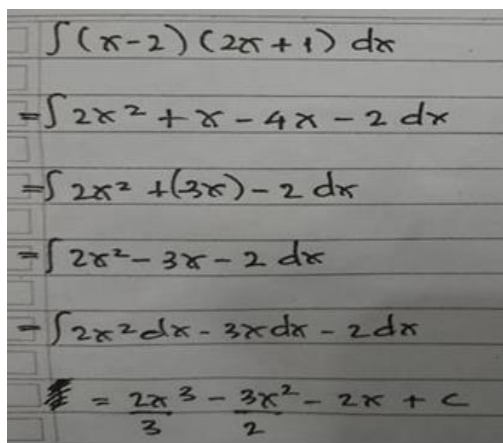 ∫(x-2)(2x+1) dx
=∫2x² + x - 4x - 2 dx
=∫2x² +(-3x) - 2 dx
=∫2x² - 3x - 2 dx
=∫2x²dx - 3xdx - 2dx
= 2x³/3 - 3x²/2 - 2x + c